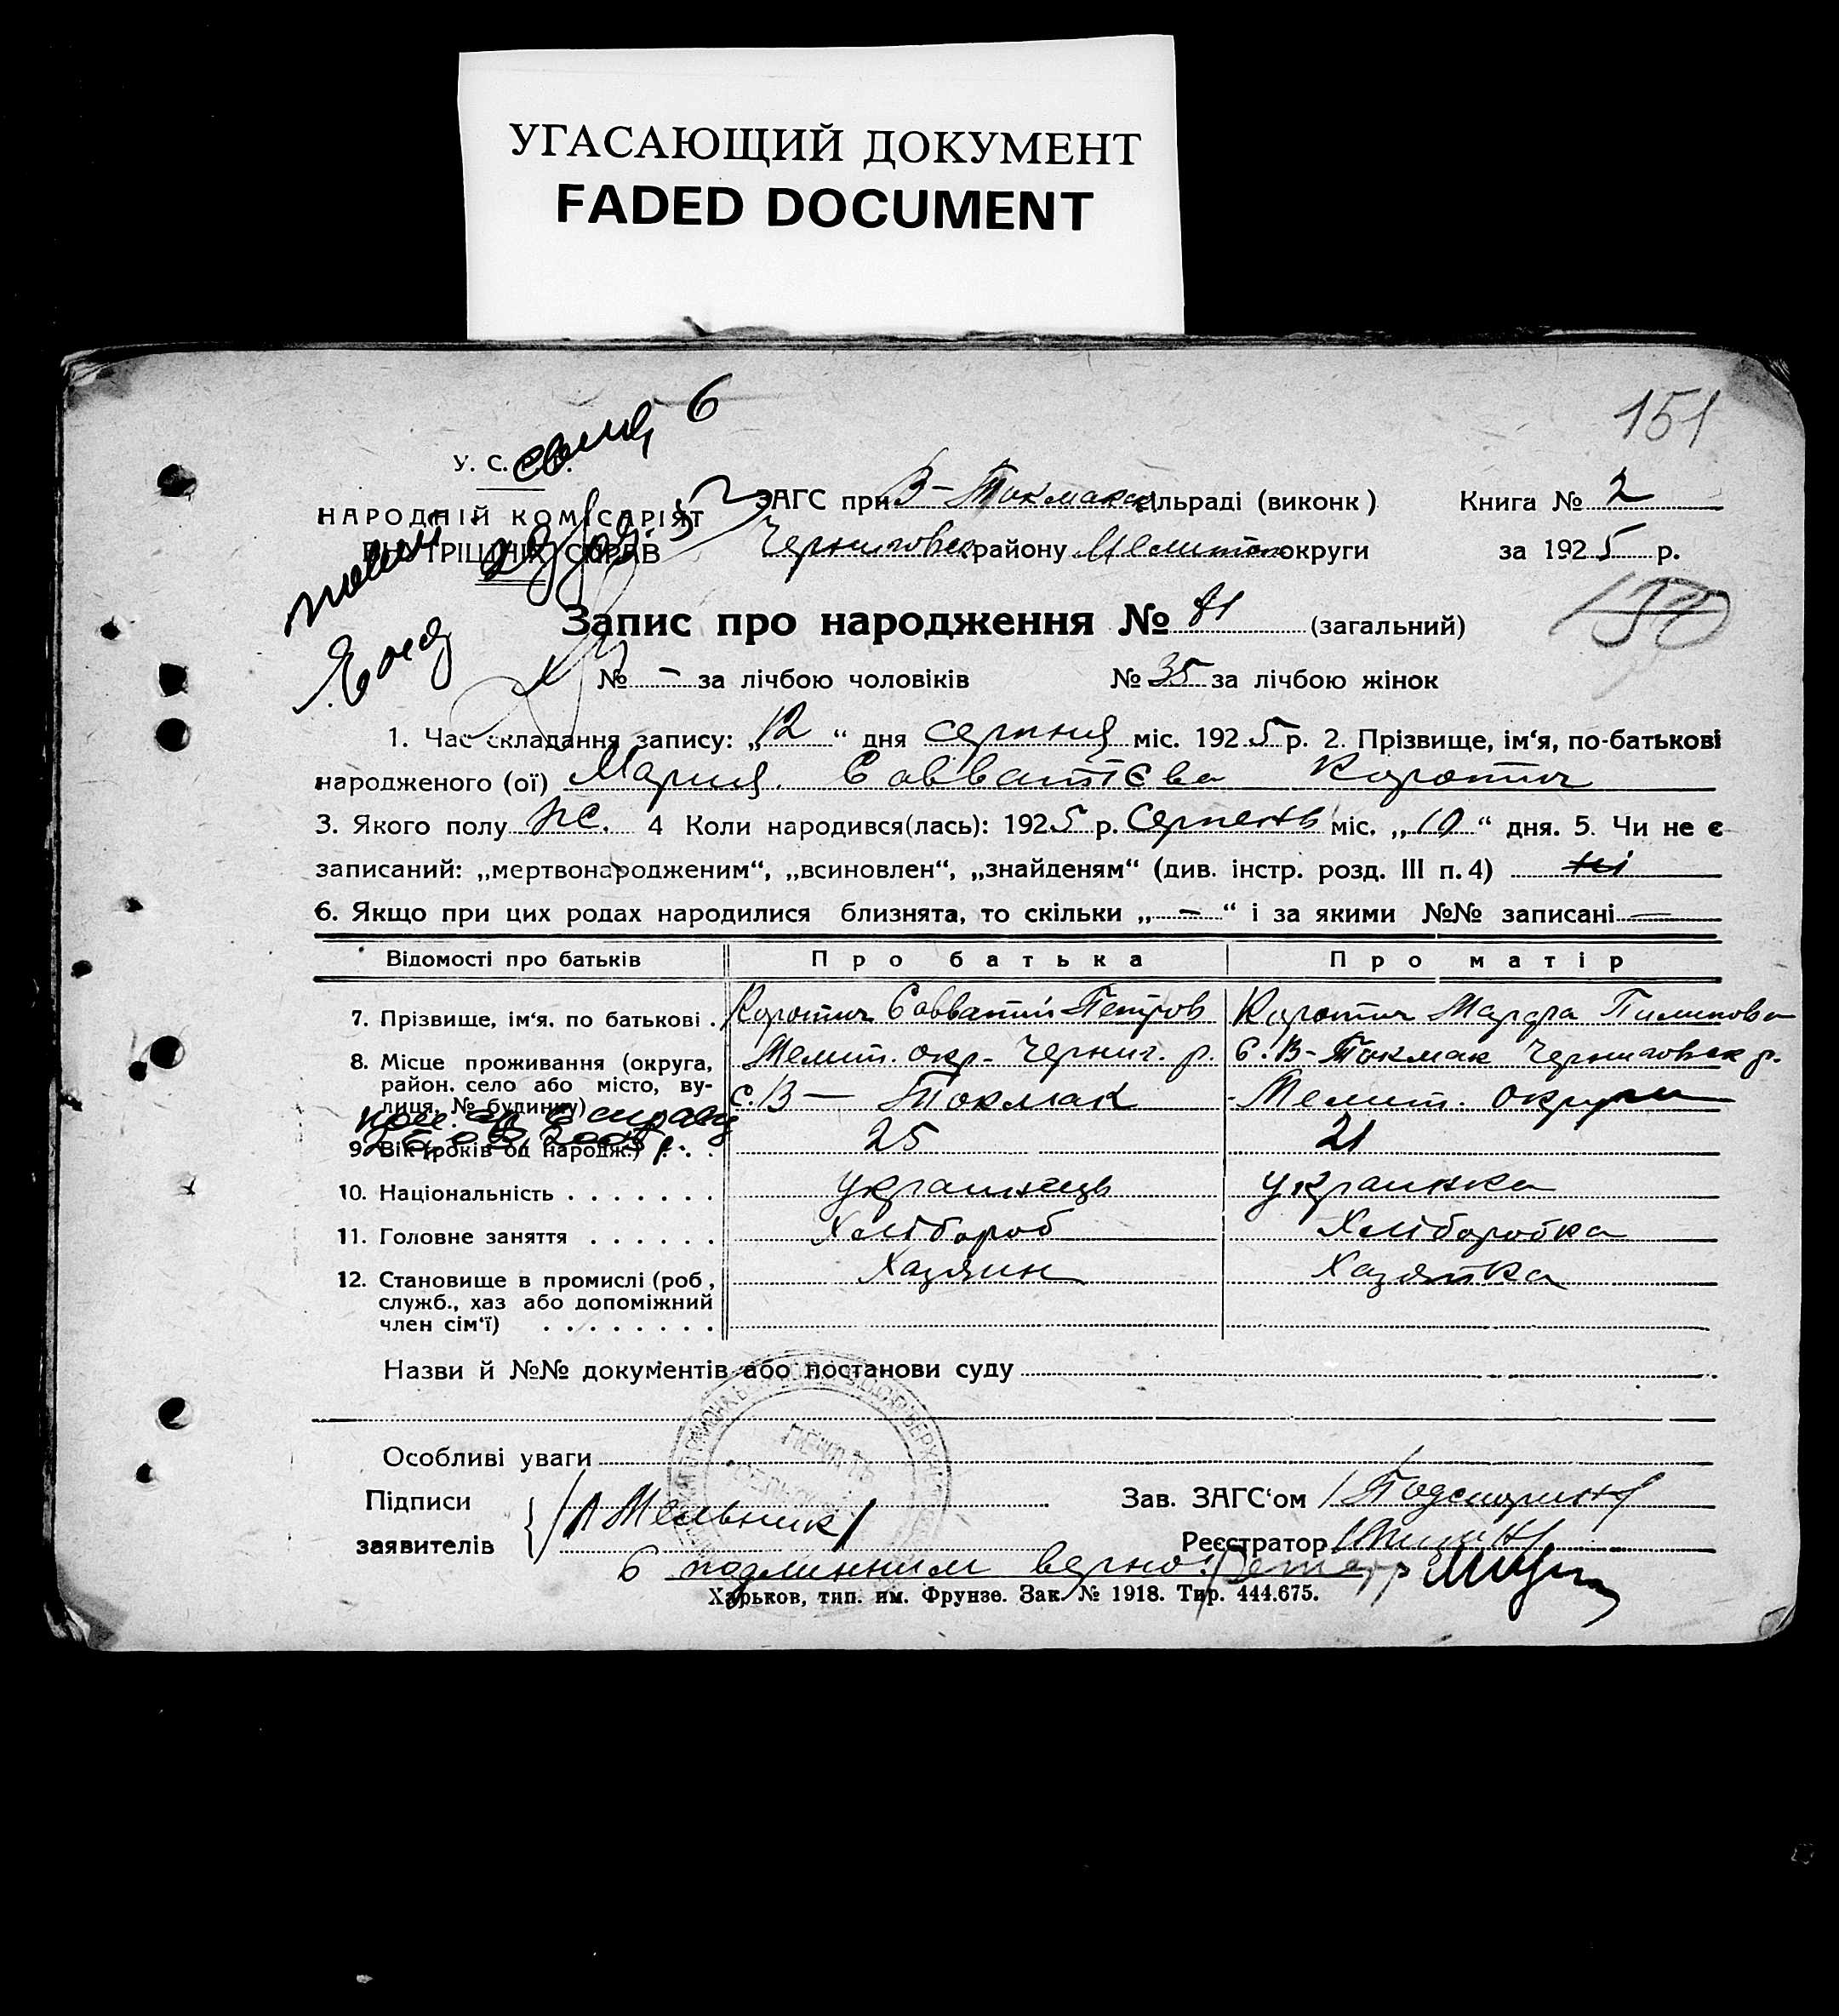 УГАСАЮЩИЙ ДОКУМЕНТ
FADED DOCUMENT
151
У. С. Р. Р.
НАРОДНІЙ КОМІСАРІЯТ
ВНУТРІШНІХ СПРАВ
ЗАГС при В-Токмакск сільраді (виконк) Книга № 2
Черниговск району Мелитоп округи за 1925 р.
150
Запис про народження № 81 (загальний)
№ - за лічбою чоловіків № 35 за лічбою жінок
1. Час складання запису: „12“ дня серпня міс. 1925 р. 2. Прізвище, ім‘я, по-батькові
народженого (ої) Мария Савватієва Каротич
3. Якого полу ж. 4 Коли народився(лась): 1925 р. Серпень міс. „10“ дня. 5. Чи не є
записаний: „мертвонародженим“, „всиновлен“, „знайденям“ (див. інстр. розд. III п. 4) ні
6. Якщо при цих родах народилися близнята, то скільки „-“ і за якими №№ записані —
Відомості про батьків Про батька Про матір
7. Прізвище, ім‘я, по батькові . Каротич Савватий Петров Каротич Марфа Пилипова
8. Місце проживання (округа, Мелит. окр. Черниг. р. С. В-Токмак Черниговск р.
район, село або місто, вулиця, № будинку) с. В — Токмак Мелит. округи
9. Вік (років од народж.) 25 21
10. Національність . . . . . . . украинець украинка
11. Головне заняття . . . . . . Хлібороб Хліборобка
12. Становище в промислі (роб., Хазяин Хазяйка
служб., хаз або допоміжний
член сім‘ї) . . . . . . . .
Назви й №№ документів або постанови суду
Особливі уваги
Підписи Зав. ЗАГС‘ом
заявителів /Мельник/ Реєстратор
С подлинним верно:
Харьков, тип. им. Фрунзе. Зак. № 1918. Тир. 444.675.